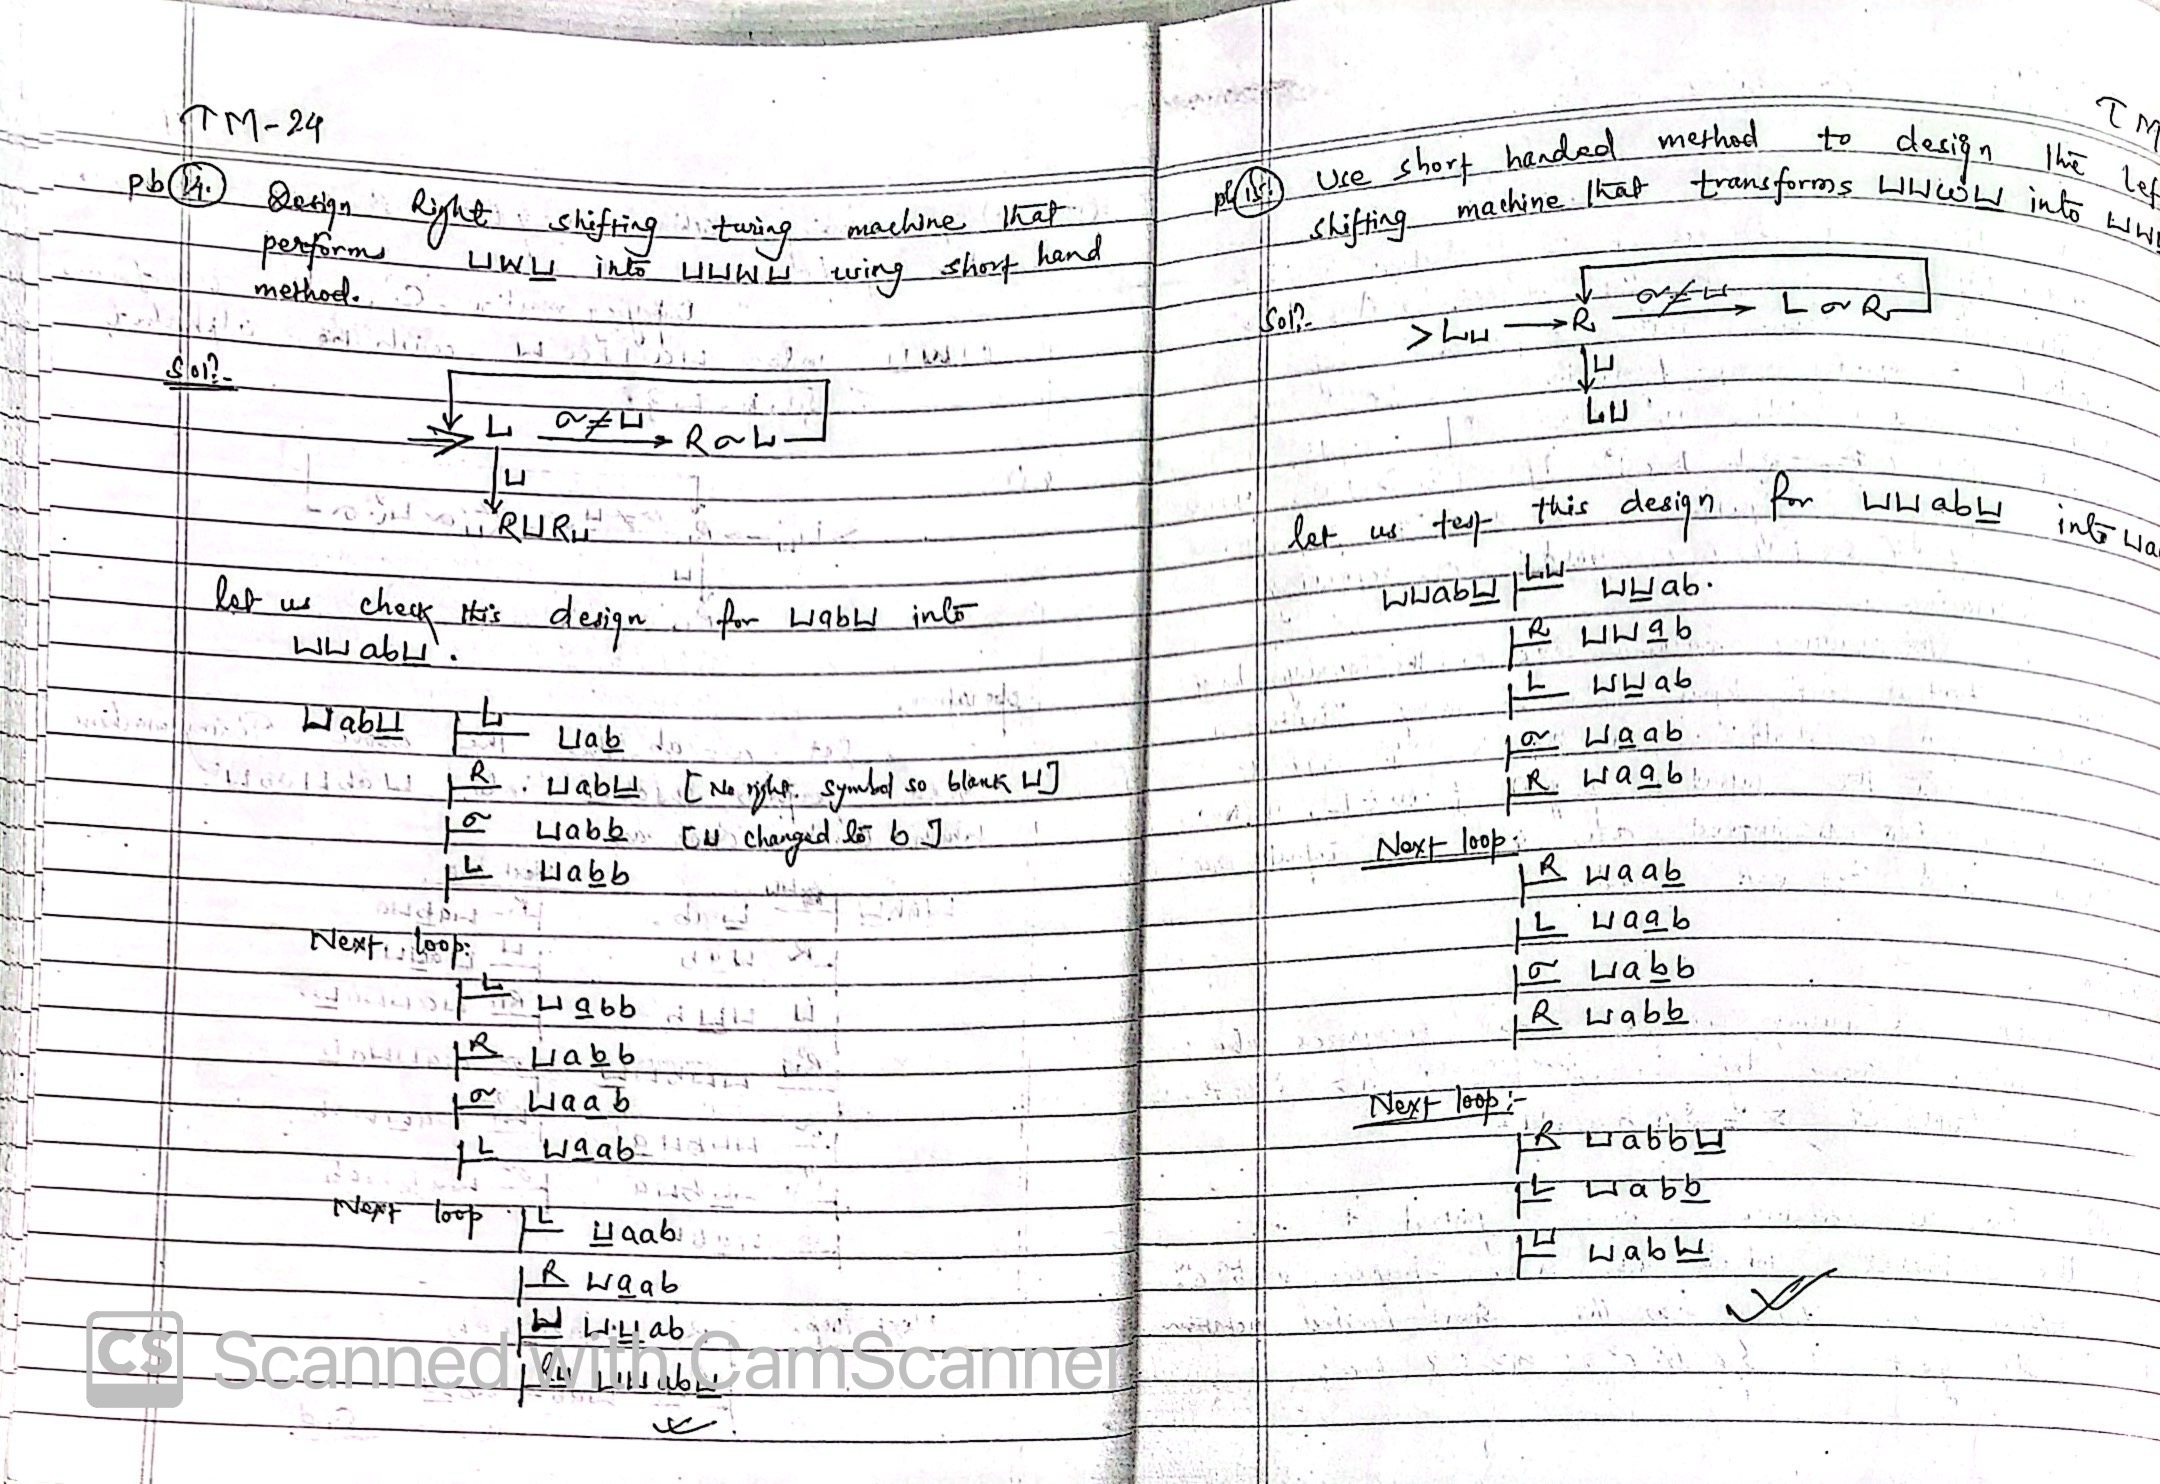 TM-24
pb 14. Design Right shifting turing machine that
perform ⊔w⊔ into ⊔⊔w⊔ using short hand
method.
Sol?-
L σ≠⊔ R σ L
⊔
R⊔R⊔
let us check this design for ⊔ab⊔ into
⊔⊔ab⊔.
⊔ab⊔ |L ⊔ab
|R ⊔ab⊔ [No right symbol so blank ⊔]
|σ ⊔abb [⊔ changed to b]
|L ⊔abb
Next loop:
|L ⊔abb
|R ⊔abb
|σ ⊔aab
|L ⊔aab
Next loop |L ⊔aab
|R ⊔aab
|⊔ ⊔⊔ab
|R⊔ ⊔⊔ab⊔
CS Scanned with CamScanner
TM
pb 15. Use short handed method to design the lef
shifting machine that transforms ⊔⊔w⊔ into ⊔w
Sol?-
>L⊔ → R σ≠⊔ L σ R
⊔
L⊔
let us test this design for ⊔⊔ab⊔ into ⊔a
⊔⊔ab⊔ |L⊔ ⊔⊔ab.
|R ⊔⊔ab
|L ⊔⊔ab
|σ ⊔aab
|R ⊔aab
Next loop:
|R ⊔aab
|L ⊔aab
|σ ⊔abb
|R ⊔abb
Next loop:-
|R ⊔abb⊔
|L ⊔abb
|⊔ ⊔ab⊔